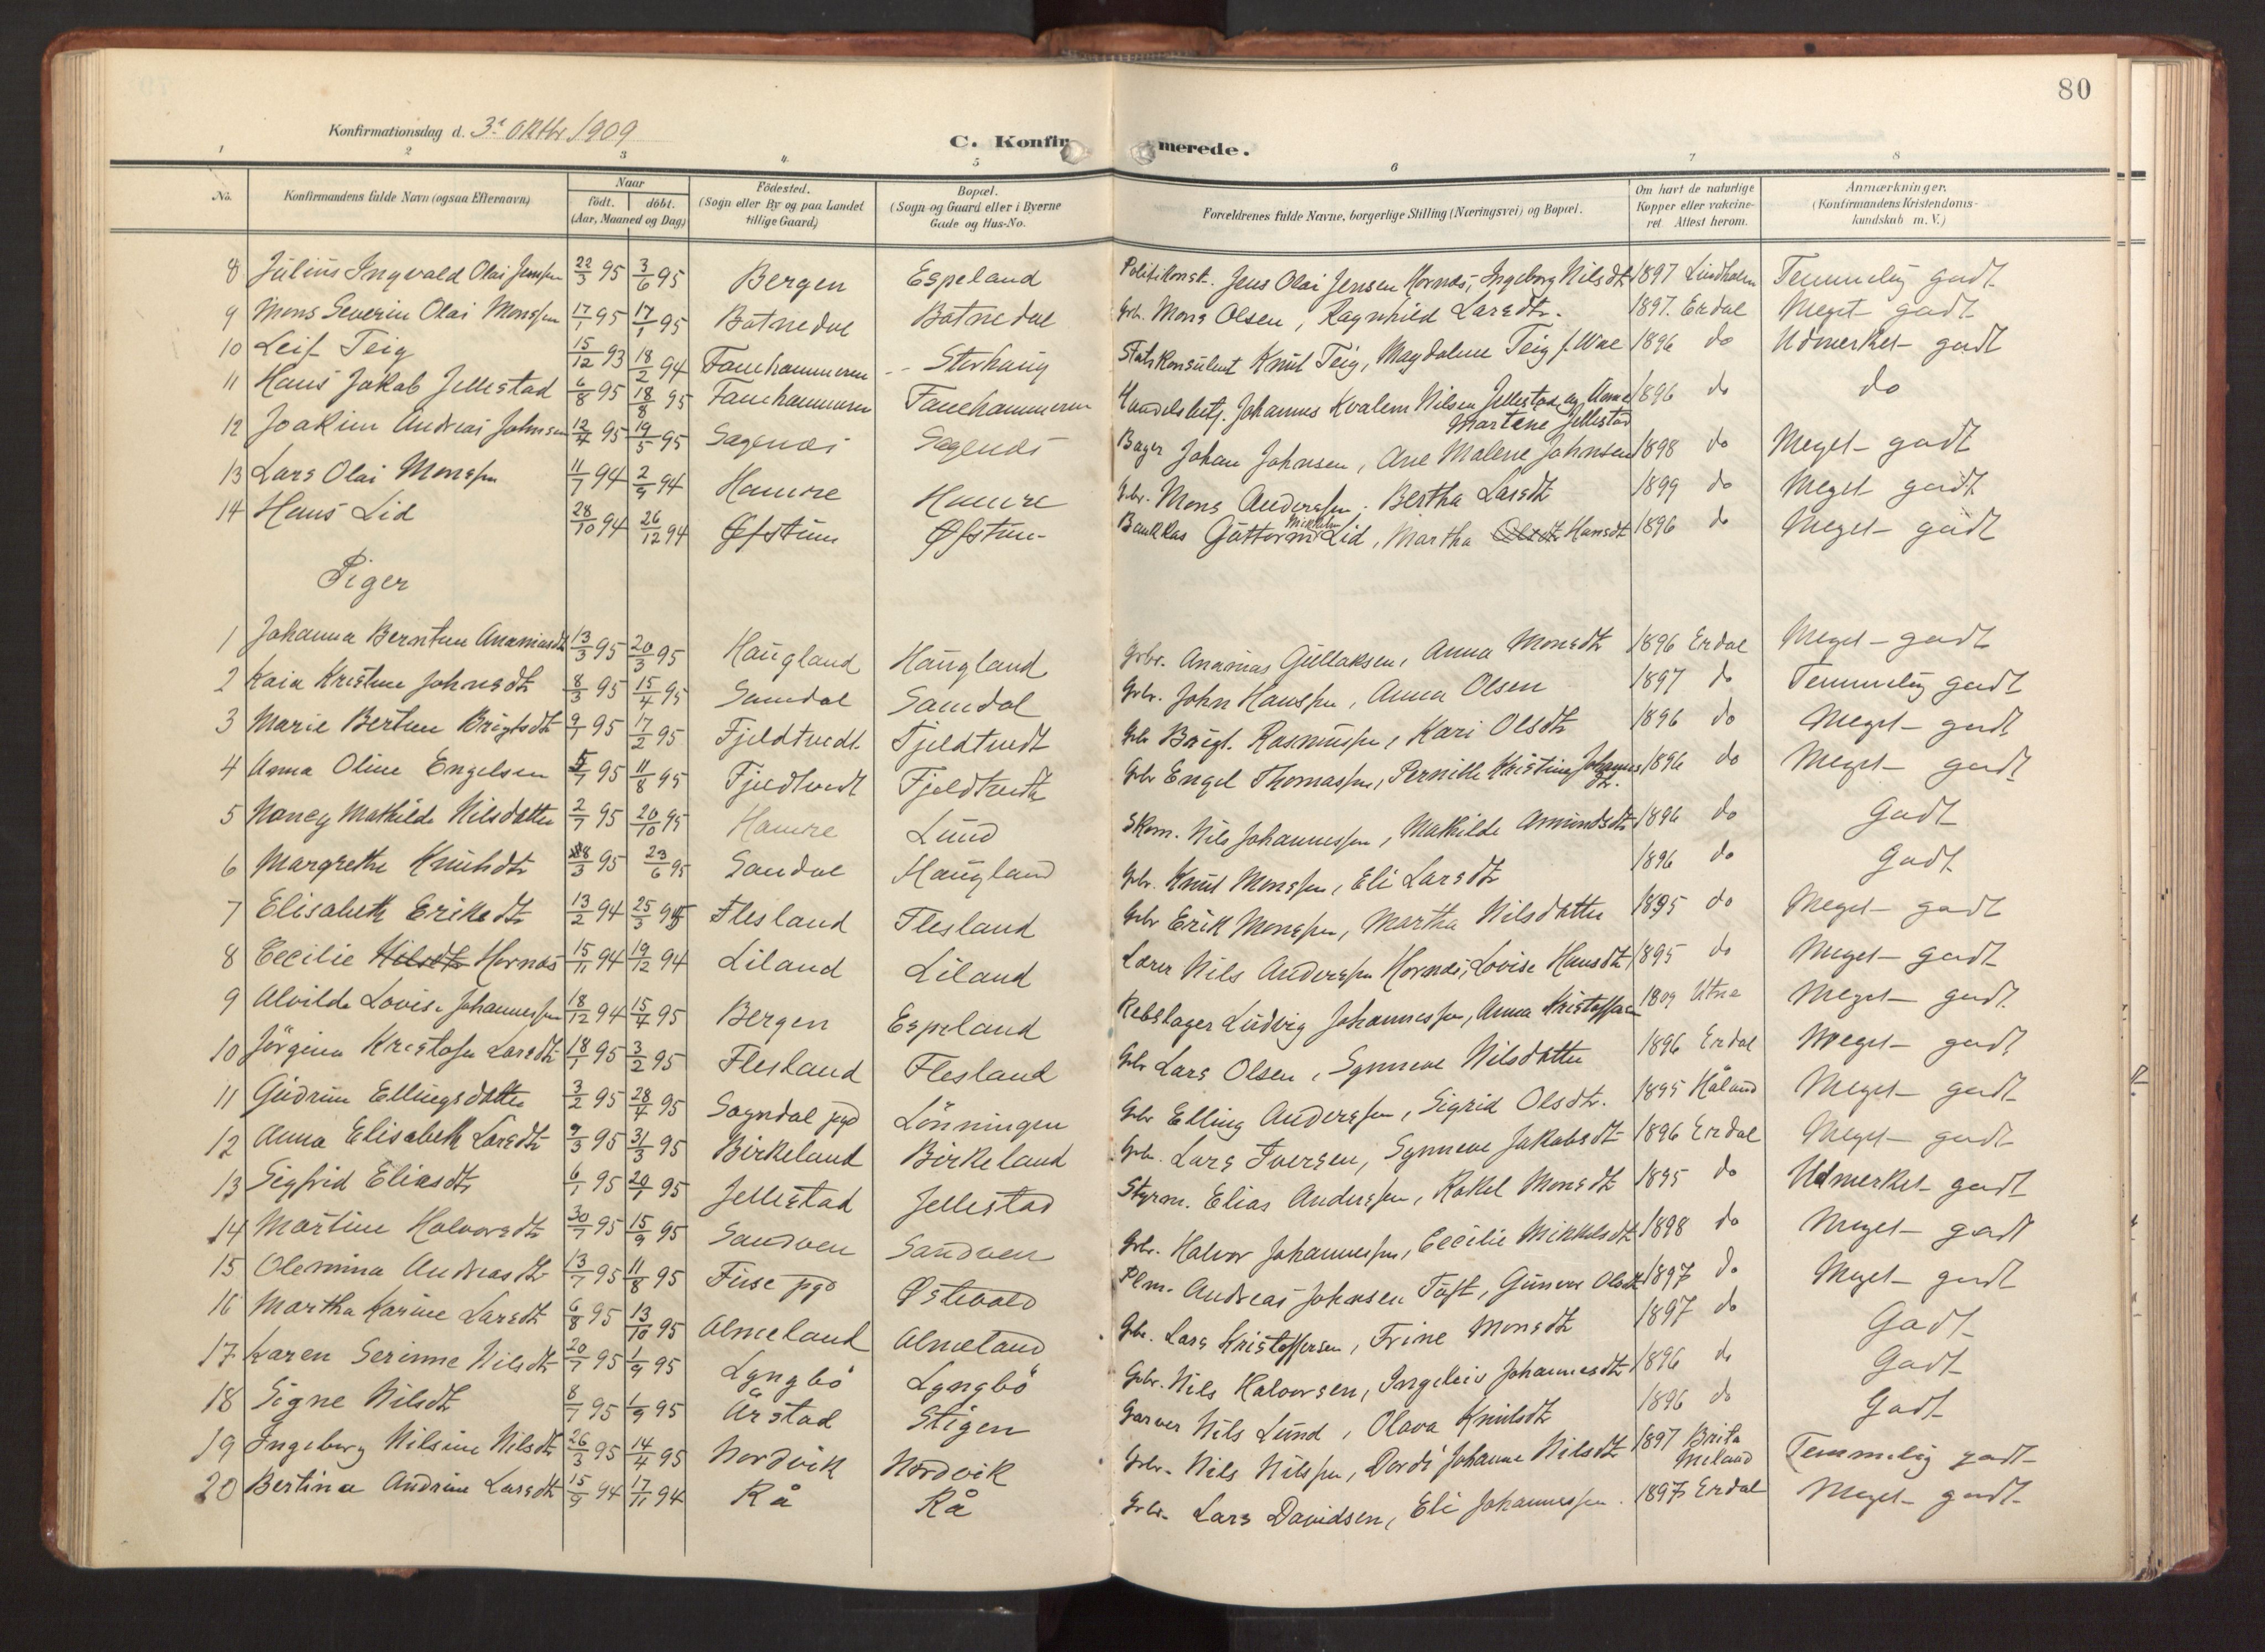 80
Konfirmationsdag d. 3' Oktbr 1909
C. Konfirmerede.
1 2 3 4. 5 6 7 8
No. Konfirmandens fulde Navn (ogsaa Efternavn) Naar født. døbt. (Aar, Maaned og Dag) Födested. (Sogn eller By og paa Landet tillige Gaard) Bopæl. (Sogn og Gaard eller i Byerne Gade og Hus-No. Forældrenes fulde Navne, borgerlige Stilling (Næringsvei) og Bopæl. Om havt de naturlige Kopper eller vakcineret. Attest herom. Anmærkninger. (Konfirmandens Kristendomskundskab m. V.)
8 Julius Ingvald Olai Jensen 22/3 95 3/6 95 Bergen Espeland Politikonst. Jens Olai Jensen Hornnes, Ingeborg Nilsdtr 1897 Lindholm Temmelig godt
9 Mons Severin Olai Monsen 17/1 95 17/1 95 Botnedal Botnedal Gb. Mons Olsen, Ragnhild Larsdtr. 1897. Erdal Meget godt
10 Leif Teig 15/12 93 18/2 94 Fanehammeren Storhaug Statskonsulent Knut Teig, Magdalene Teig f. Wae 1896 do Udmerket godt
11 Hans Jakob Jellestad 6/8 95 18/8 95 Fanehammeren Fanehammeren Handelsbetj. Johannes Kvalem Nilsen Jellestad og Anne Martine Jellestad 1896 do do
12 Joakim Andreas Johnsen 12/4 95 19/5 95 Sagenes Sagenes Bager Johan Johnsen, Ane Malene Johnsen 1898 do Meget godt
13 Lars Olai Monsen 11/7 94 2/9 94 Hamre Hamre Gbr. Mons Andersen, Bertha Larsdtr 1899 do Meget godt
14 Hans Lid 28/10 94 26/12 94 Øfstun Øfstun Bankkas Guttorm Mikkelsen Lid, Martha Olsdtr Hansdtr 1896 do Meget godt
Piger
1 Johanna Berntine Ananiasdtr 13/3 95 20/3 95 Haugland Haugland Grbr. Ananias Gullaksen, Anna Monsdtr 1896 Erdal Meget godt
2 Kaia Kristine Johnsdtr 8/3 95 15/4 95 Samdal Samdal Gbr. John Hansen, Anna Olsen 1897 do Temmelig godt
3 Marie Bertine Brigtsdtr 9/1 95 17/2 95 Fjeldtvedt Fjeldtvedt Gbr Brigt. Rasmussen, Kari Olsdtr 1896 do Meget godt
4 Anna Oline Engelsen 5/7 95 11/8 95 Fjeldtvedt Fjeldtvedt Grbr Engel Thomassen, Pernille Kristine Johannesdtr. 1896 do Meget godt
5 Nancy Mathilde Nilsdatter 2/7 95 20/10 95 Hamre Lund Skom. Nils Johannessen, Mathilde Amundsdtr 1896 do Godt
6 Margrethe Knutsdtr 28/3 95 23/6 95 Sandal Haugland Gbr. Knut Monsen, Eli Larsdtr 1896 do Godt
7 Elisabeth Eriksdtr 13/2 94 25/3 94 Flesland Flesland Gbr Erik Monsen, Martha Nilsdatter 1895 do Meget godt
8 Cecilie Nilsdtr Hornæs 15/11 94 19/12 94 Liland Liland Lærer Nils Andersen Hornæs, Lovise Hansdtr 1895 do Meget godt
9 Alvilde Lovise Johannessen 18/12 94 15/4 95 Bergen Espeland Rebslager Ludvig Johannessen, Anna Kristoffersen 1809 Utne Meget godt
10 Jörgine Kristofa Larsdtr 18/1 95 3/2 95 Flesland Flesland Gbr Lars Olsen, Synneve Nilsdatter 1896 Erdal Meget godt
11 Gudrun Ellingsdatter 3/2 95 28/4 95 Sogndal pgd Lönningen Gbr Elling Andersen, Sigrid Olsdtr. 1895 Håland Meget godt
12 Anna Elisabeth Larsdtr 9/3 95 31/3 95 Birkeland Birkeland Gbr. Lars Iversen, Synneve Jakobsdtr 1896 Erdal Meget godt
13 Sigfrid Eliasdtr 6/1 95 20/1 95 Jellestad Jellestad Styrm. Elias Andersen, Rakel Monsdtr 1895 do Udmerket godt
14 Martine Halvorsdtr 30/7 95 15/9 95 Sandven Sandven Gbr. Halvor Johannessen, Cecilie Mikkelsdtr 1898 do Meget godt
15 Olemina Andreasdtr 13/7 95 11/8 95 Fuse pgd Østevold Plm. Andreas Johansen Tuft, Gunvor Olsdtr 1897 do Meget godt
16 Martha Karine Larsdtr 6/8 95 13/10 95 Almeland Almeland Gbr. Lars Kristoffersen, Trine Monsdtr 1897 do Godt
17 Karen Serinne Nilsdtr 20/7 95 1/9 95 Lyngbö Lyngbö Gbr. Nils Halvorsen, Ingeleiv Johannesdtr 1896 do Godt
18 Signe Nilsdtr 8/7 95 1/9 95 Årstad Stigen Garver Nils Lund, Olava Knutsdtr 1896 do Godt
19 Ingeborg Nilsine Nilsdtr 26/3 95 14/4 95 Nordvik Nordvik Gbr. Nils Nilsen, Dordi Johanne Nilsdtr 1897 Brita Meland Temmelig godt
20 Bertina Andrine Larsdtr 15/9 94 17/11 94 Rå Rå Gbr. Lars Davidsen, Eli Johannessen. 1897 Erdal Meget godt